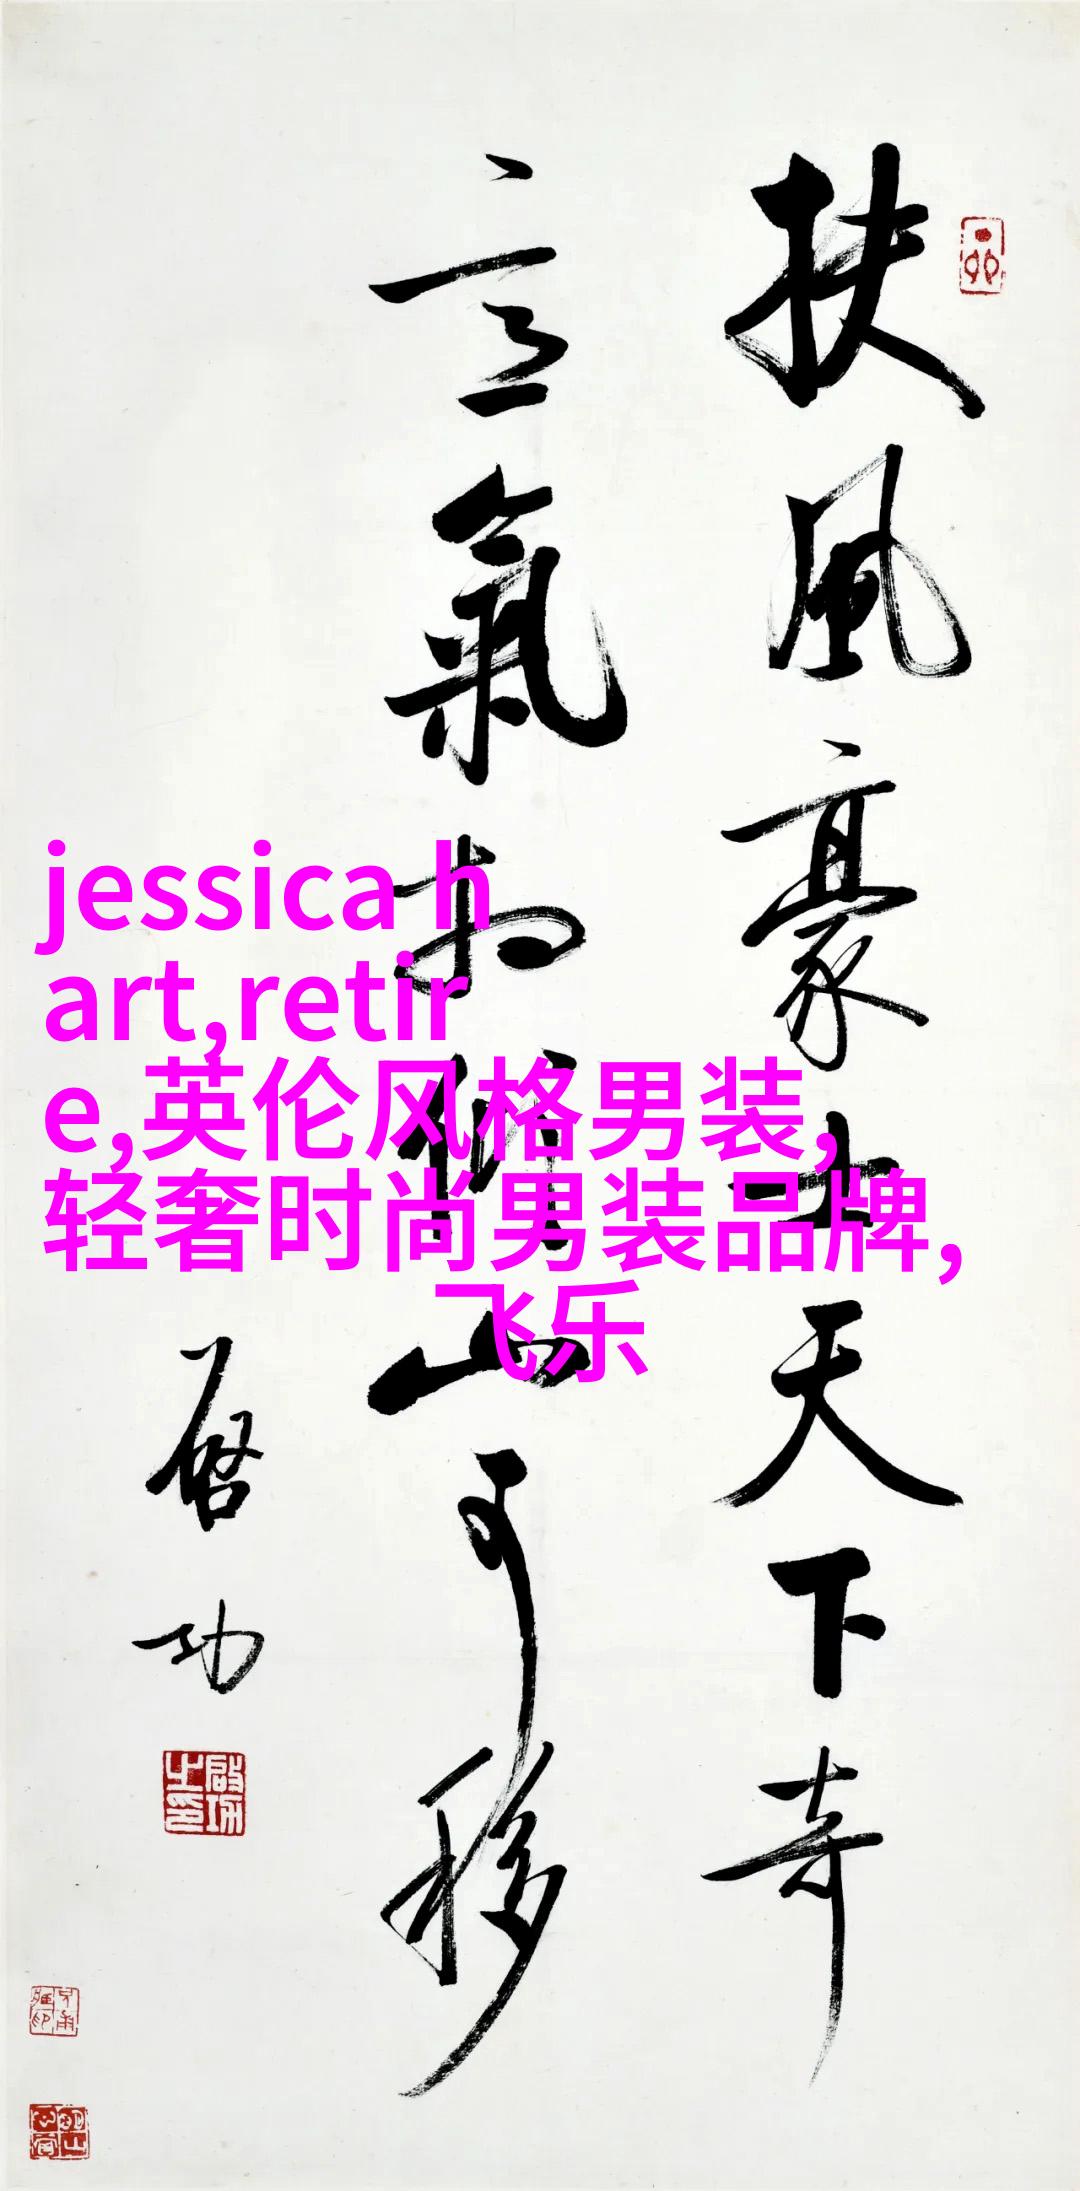 扶風豪士天下奇
意氣相傾山可移
啓功
啟功之印
jessica h
art,retir
e,英伦风格男装,
轻奢时尚男装品牌,
飞乐